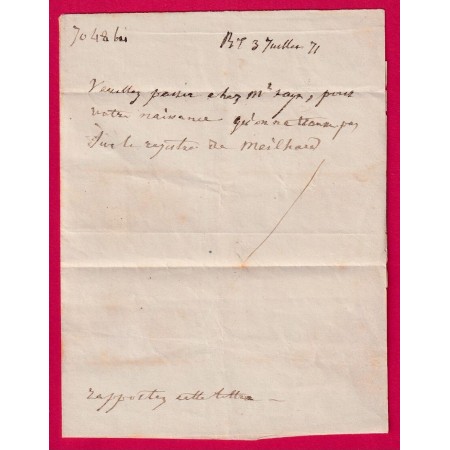 7048 bis
3 Juillet 71
Veuillez passer chez Mr, pour
votre naissance qu'on ne trouve pas
Sur le registre de Meilhard
rapportez cette lettre